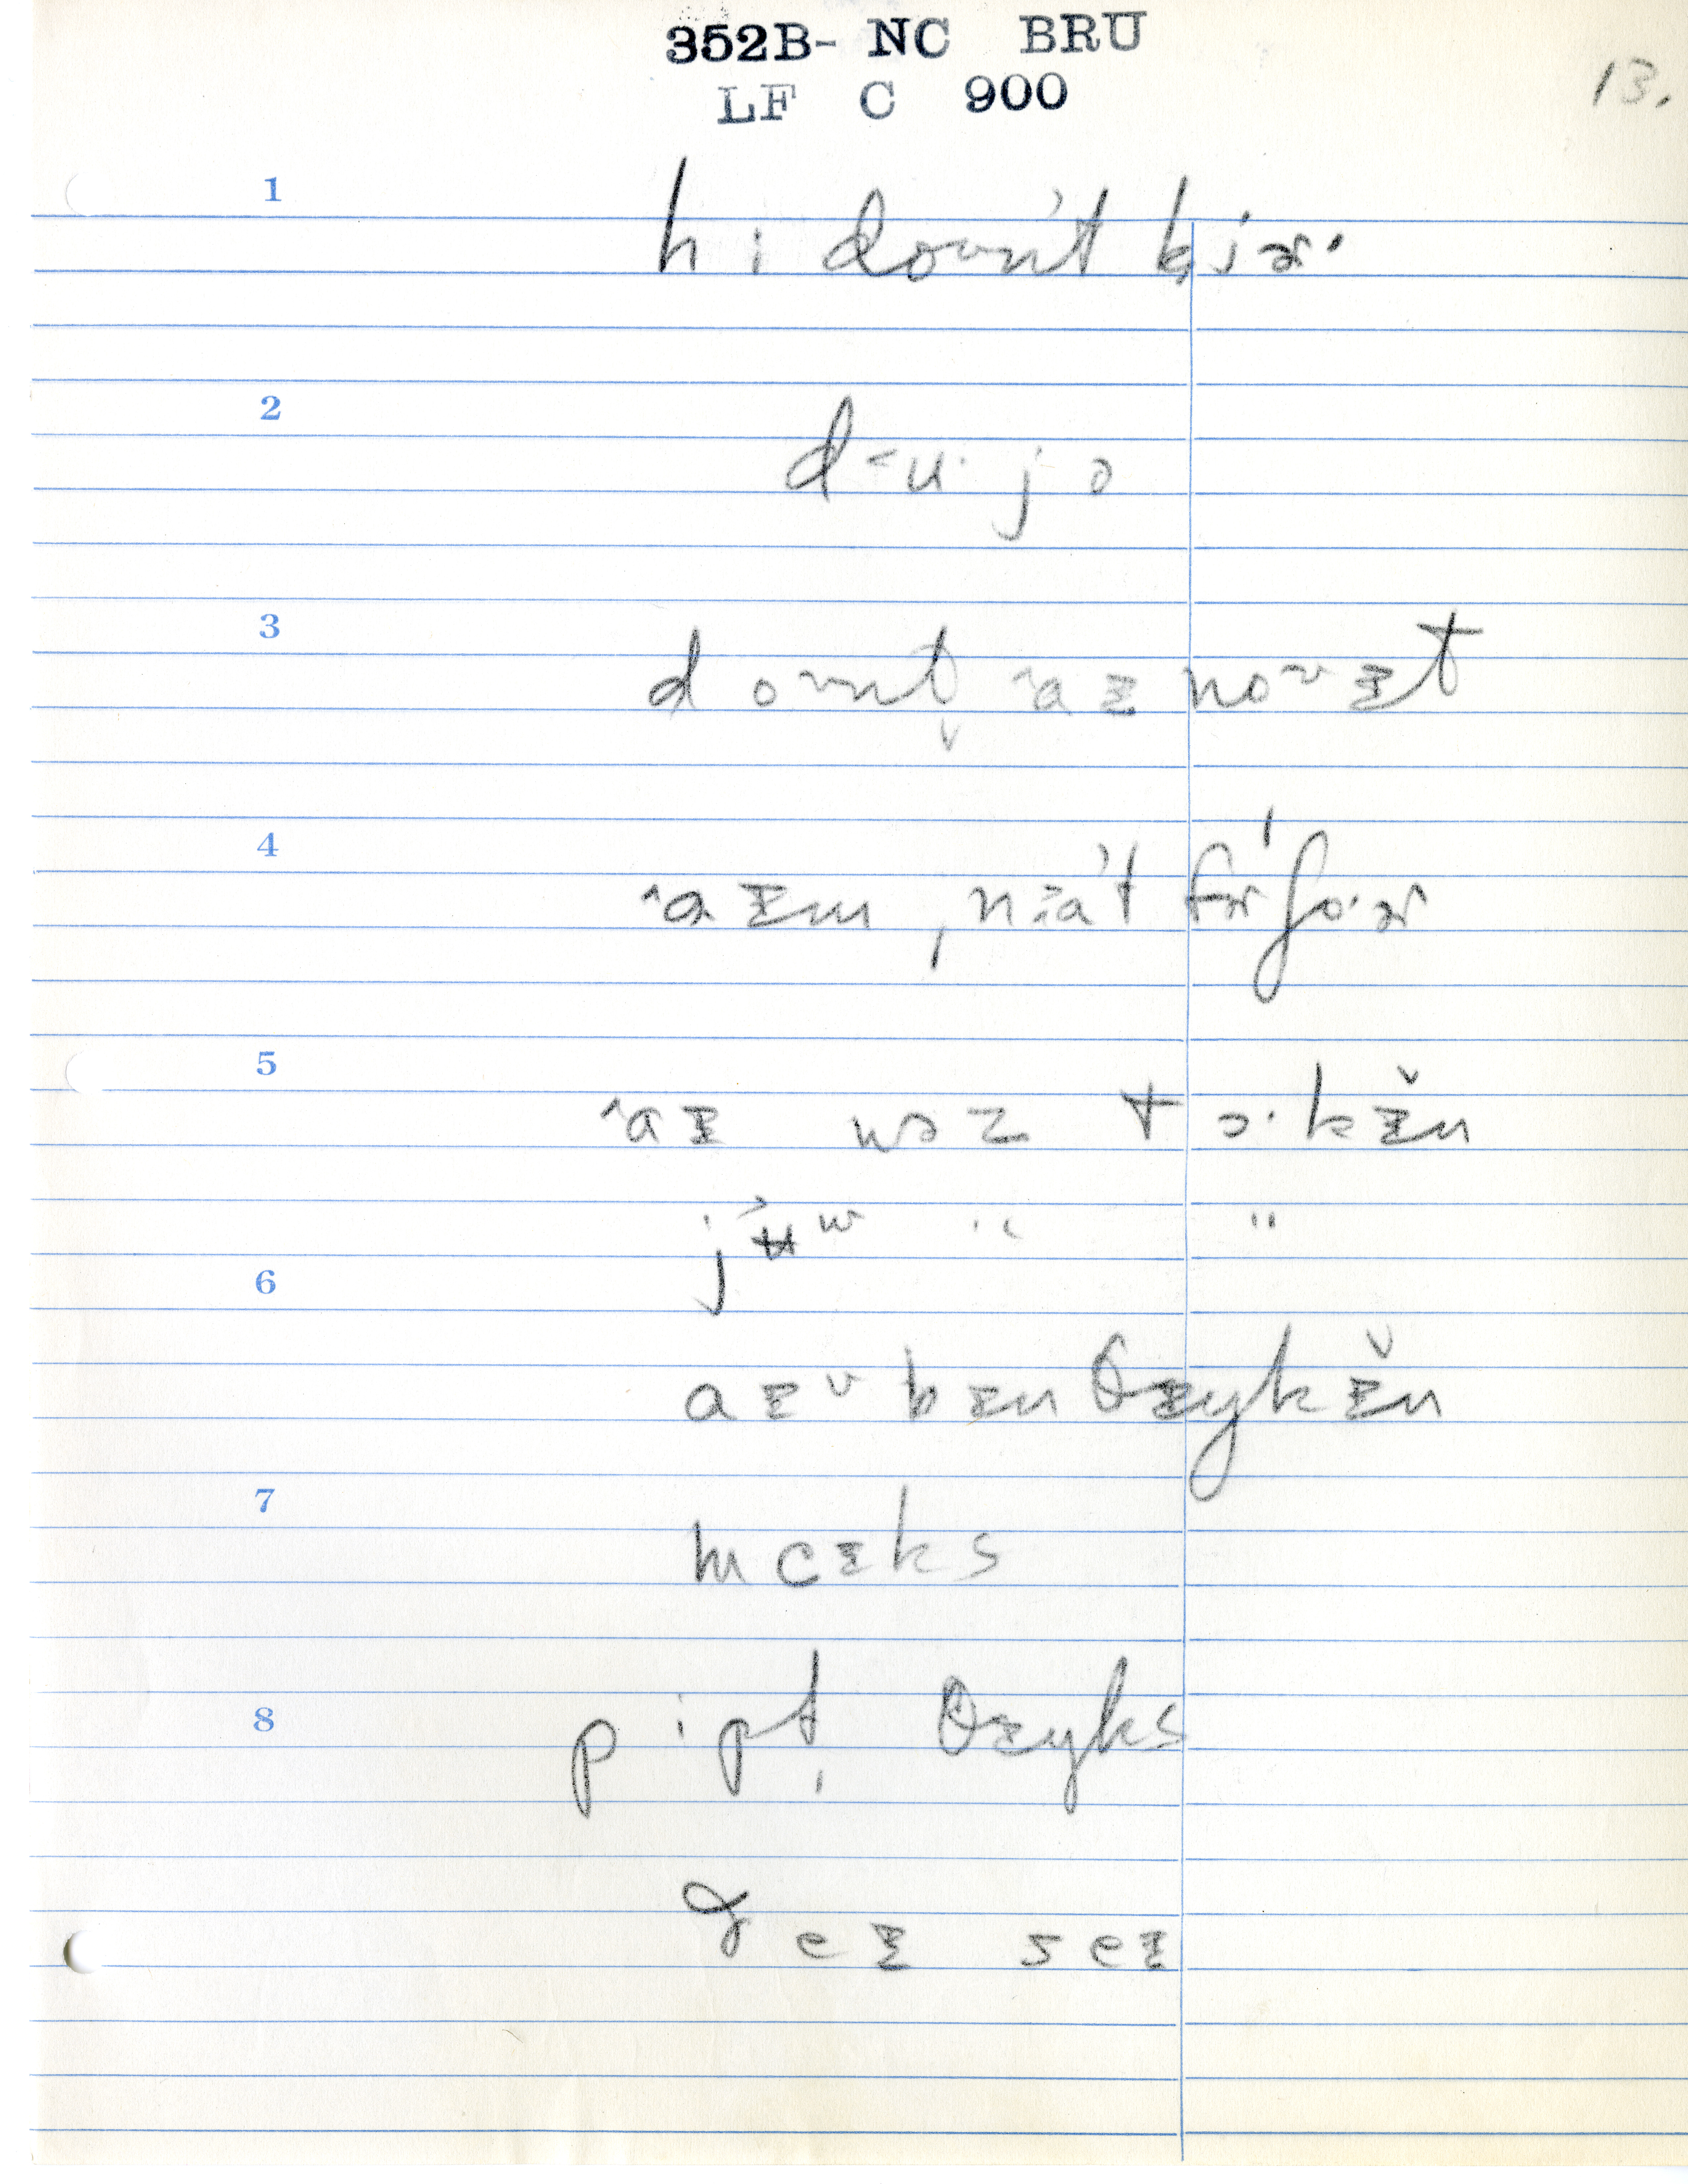 352B- NC BRU
LF C 900
13.
1
hi doᴜn't kjɚ·
2
d-u· j ə
3
doᴜnt ˆaɪ noᴜ ɪt
4
ˆaɪm , fɚ'goɚ
5
ˆaɪ wəz tɔ·kɪ̌n
j ʉ w " "
6
aɪ v bɪn θɪŋkɪ̌n
7
mɛɪks
8
pipt̩ θɪŋks
ðeɪ seɪ